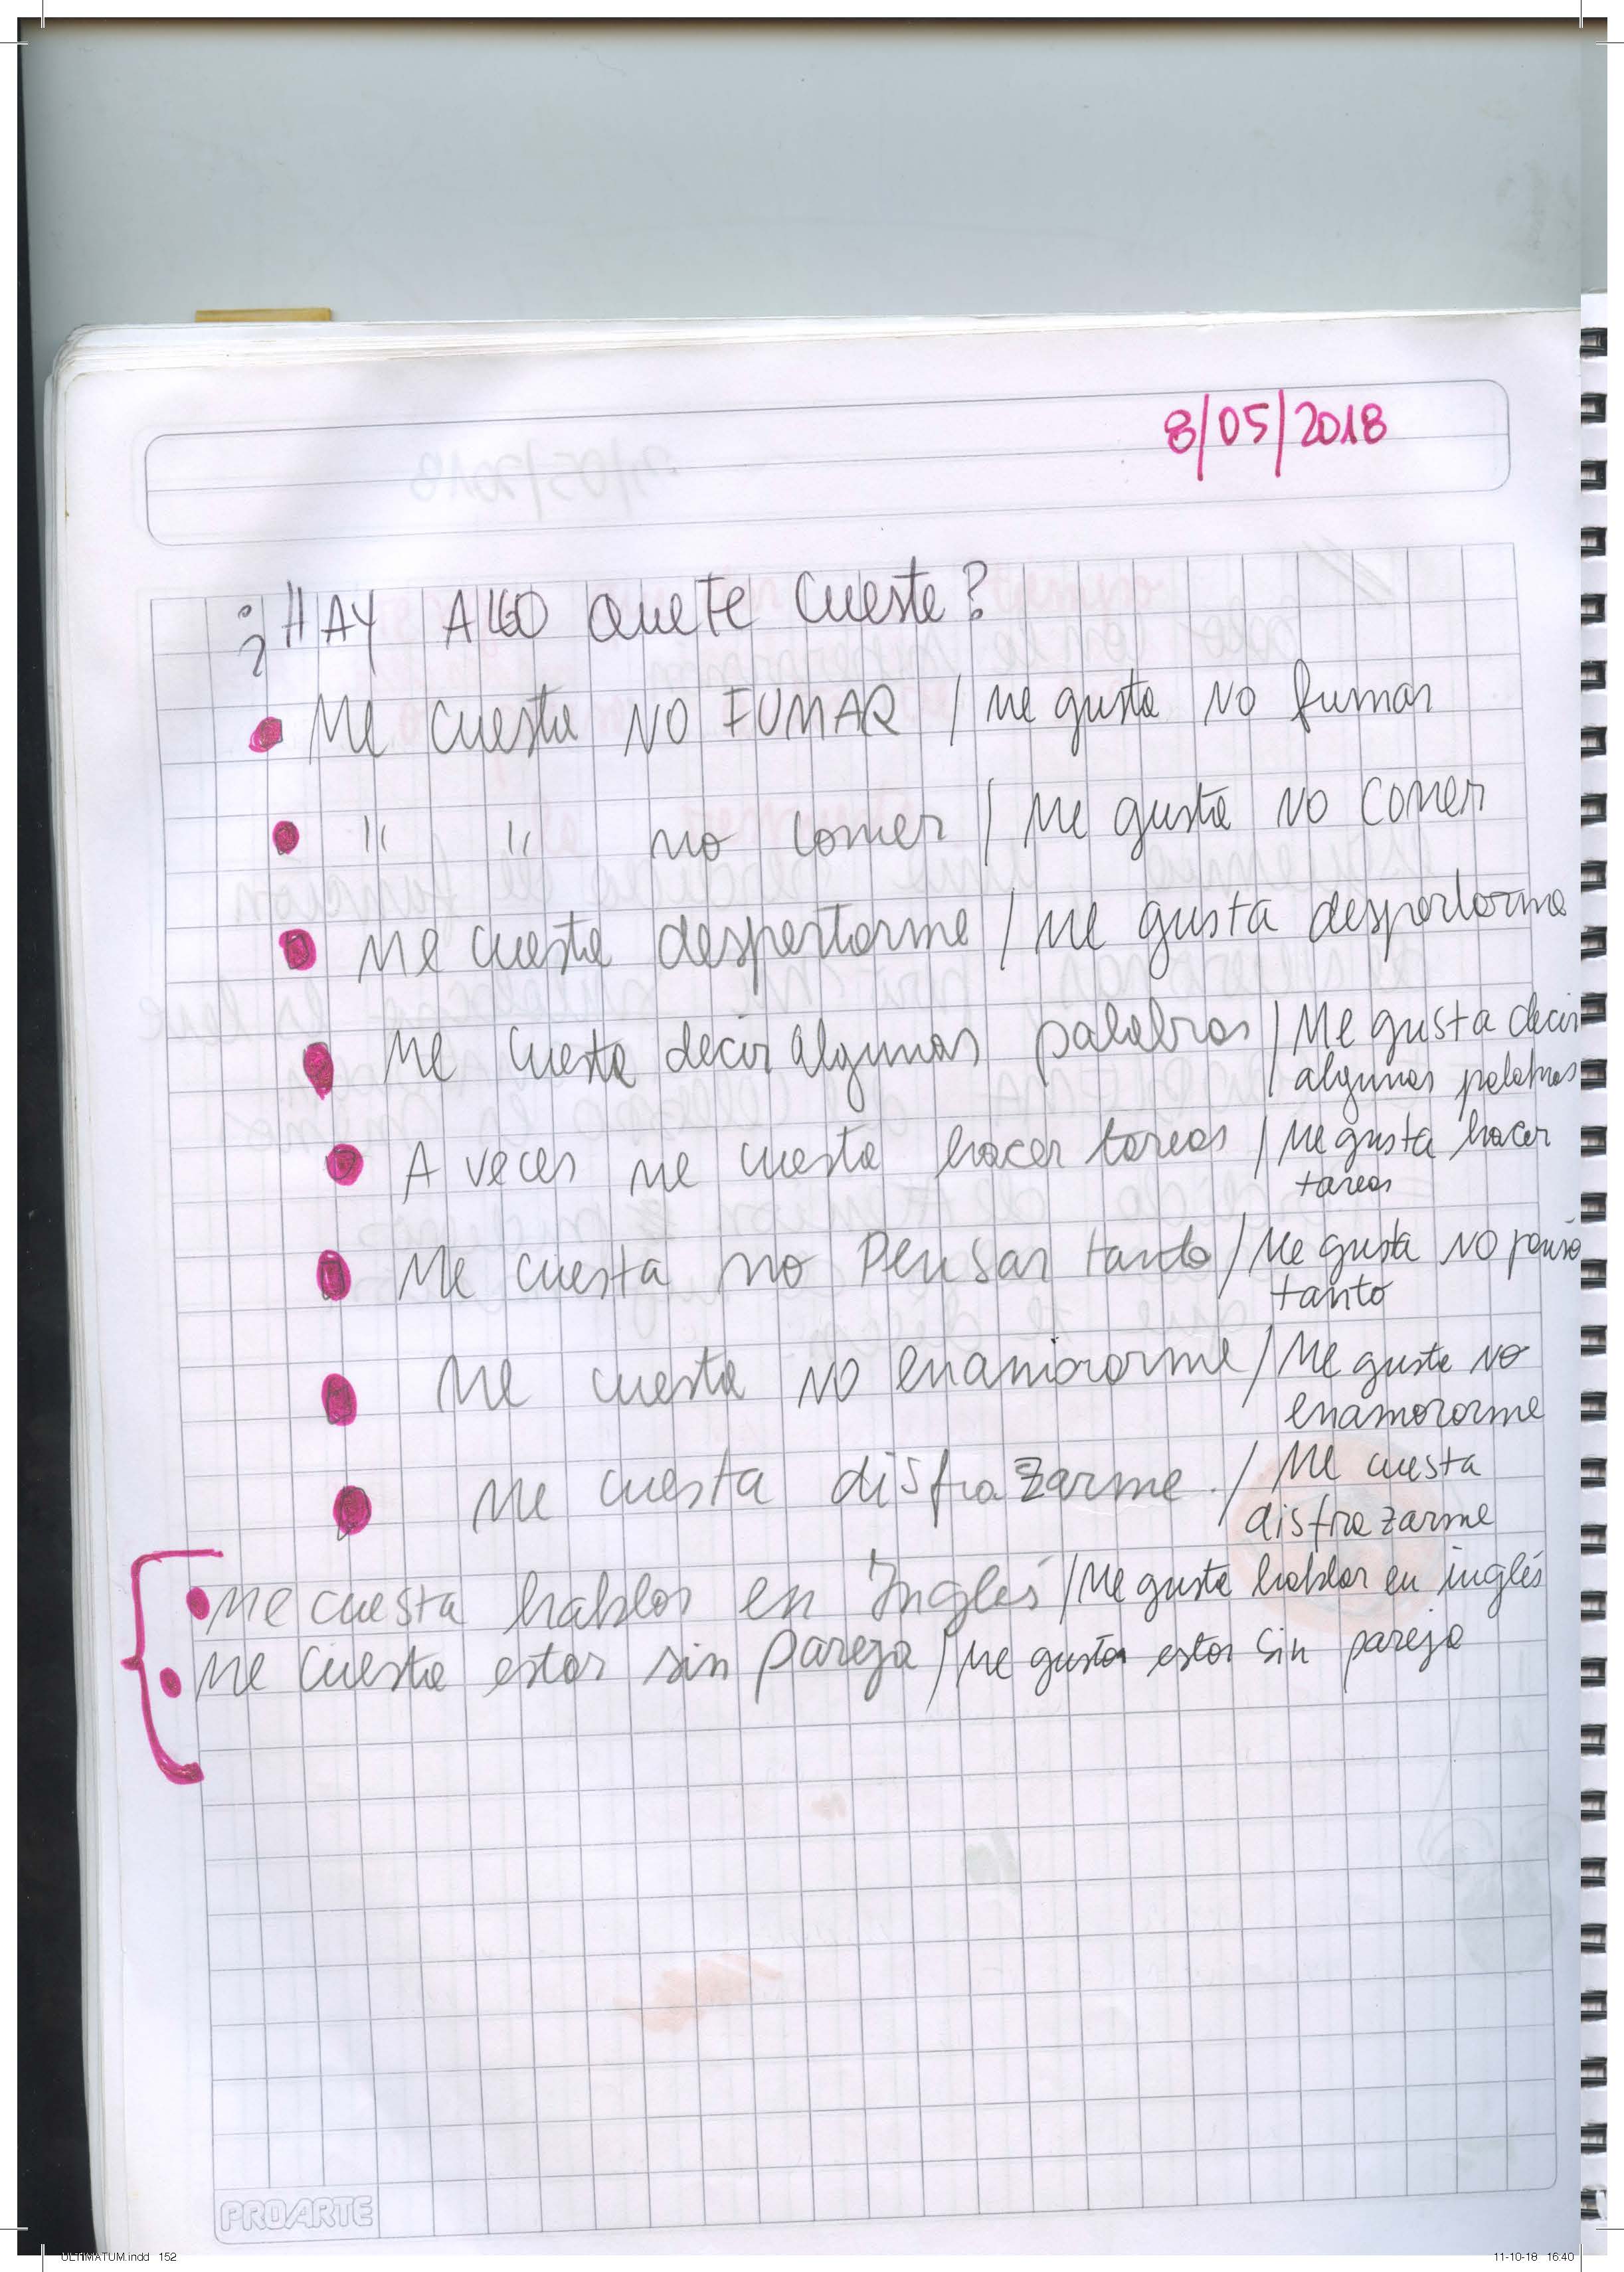 8/05/2018
¿HAY ALGO QUE TE CUESTE?
Me cuesta NO FUMAR / me gusta NO fumar
" " no comer / Me gusta NO COMER
Me cuesta despertarme / Me gusta despertarme
Me cuesta decir algunas palabras / Me gusta decir
algunas palabras
A veces me cuesta hacer tareas / Me gusta hacer
tareas
Me cuesta no Pensar tanto / Me gusta NO pensa
tanto
Me cuesta NO enamorarme / Me gusta NO
enamorarme
Me cuesta disfrazarme. / Me cuesta
disfrazarme
Me cuesta hablar en Inglés / Me gusta hablar en inglés
Me cuesta estar sin Pareja / Me gusta estar sin pareja
PROARTE
ULTIMATUM.indd 152
11-10-18 16:40